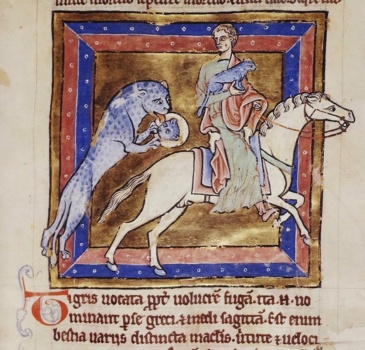 Tigris uocata ppt uolucrē fugā. ita .N. no
minant pse greci & medi sagittā. Est enim
bestia uarijs distincta maclis. uirtute & ueloci